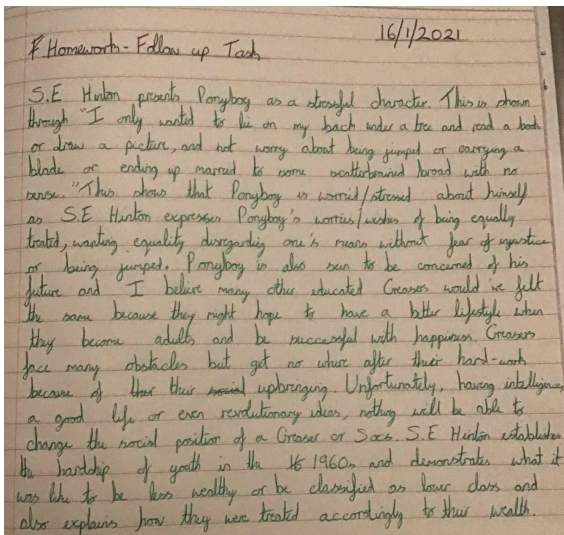 16/1/2021
Homework - Follow up Task
S.E Hinton presents Ponyboy as a stressful character. This is shown
through "I only wanted to lie on my back under a tree and read a book
or draw a picture, and not worry about being jumped or carrying a
blade or ending up married to some scatterbrained broad with no
sense." This shows that Ponyboy is worried/stressed about himself
as S.E Hinton expresses Ponyboy's worries/wishes of being equally
treated, wanting equality disregarding one's means without fear of injustice
or being jumped. Ponyboy is also seen to be concerned of his
future and I believe many other educated Greasers would've felt
the same because they might hope to have a better lifestyle when
they become adults and be successful with happiness. Greasers
face many obstacles but get no where after their hard-work
because of their upbringing. Unfortunately, having intelligence,
a good life or even revolutionary ideas, nothing will be able to
change the social position of a Greaser or Socs. S.E Hinton establishes
the hardship of youth in the 1960s and demonstrates what it
was like to be less wealthy or be classified as lower class and
also explains how they were treated accordingly to their wealth.